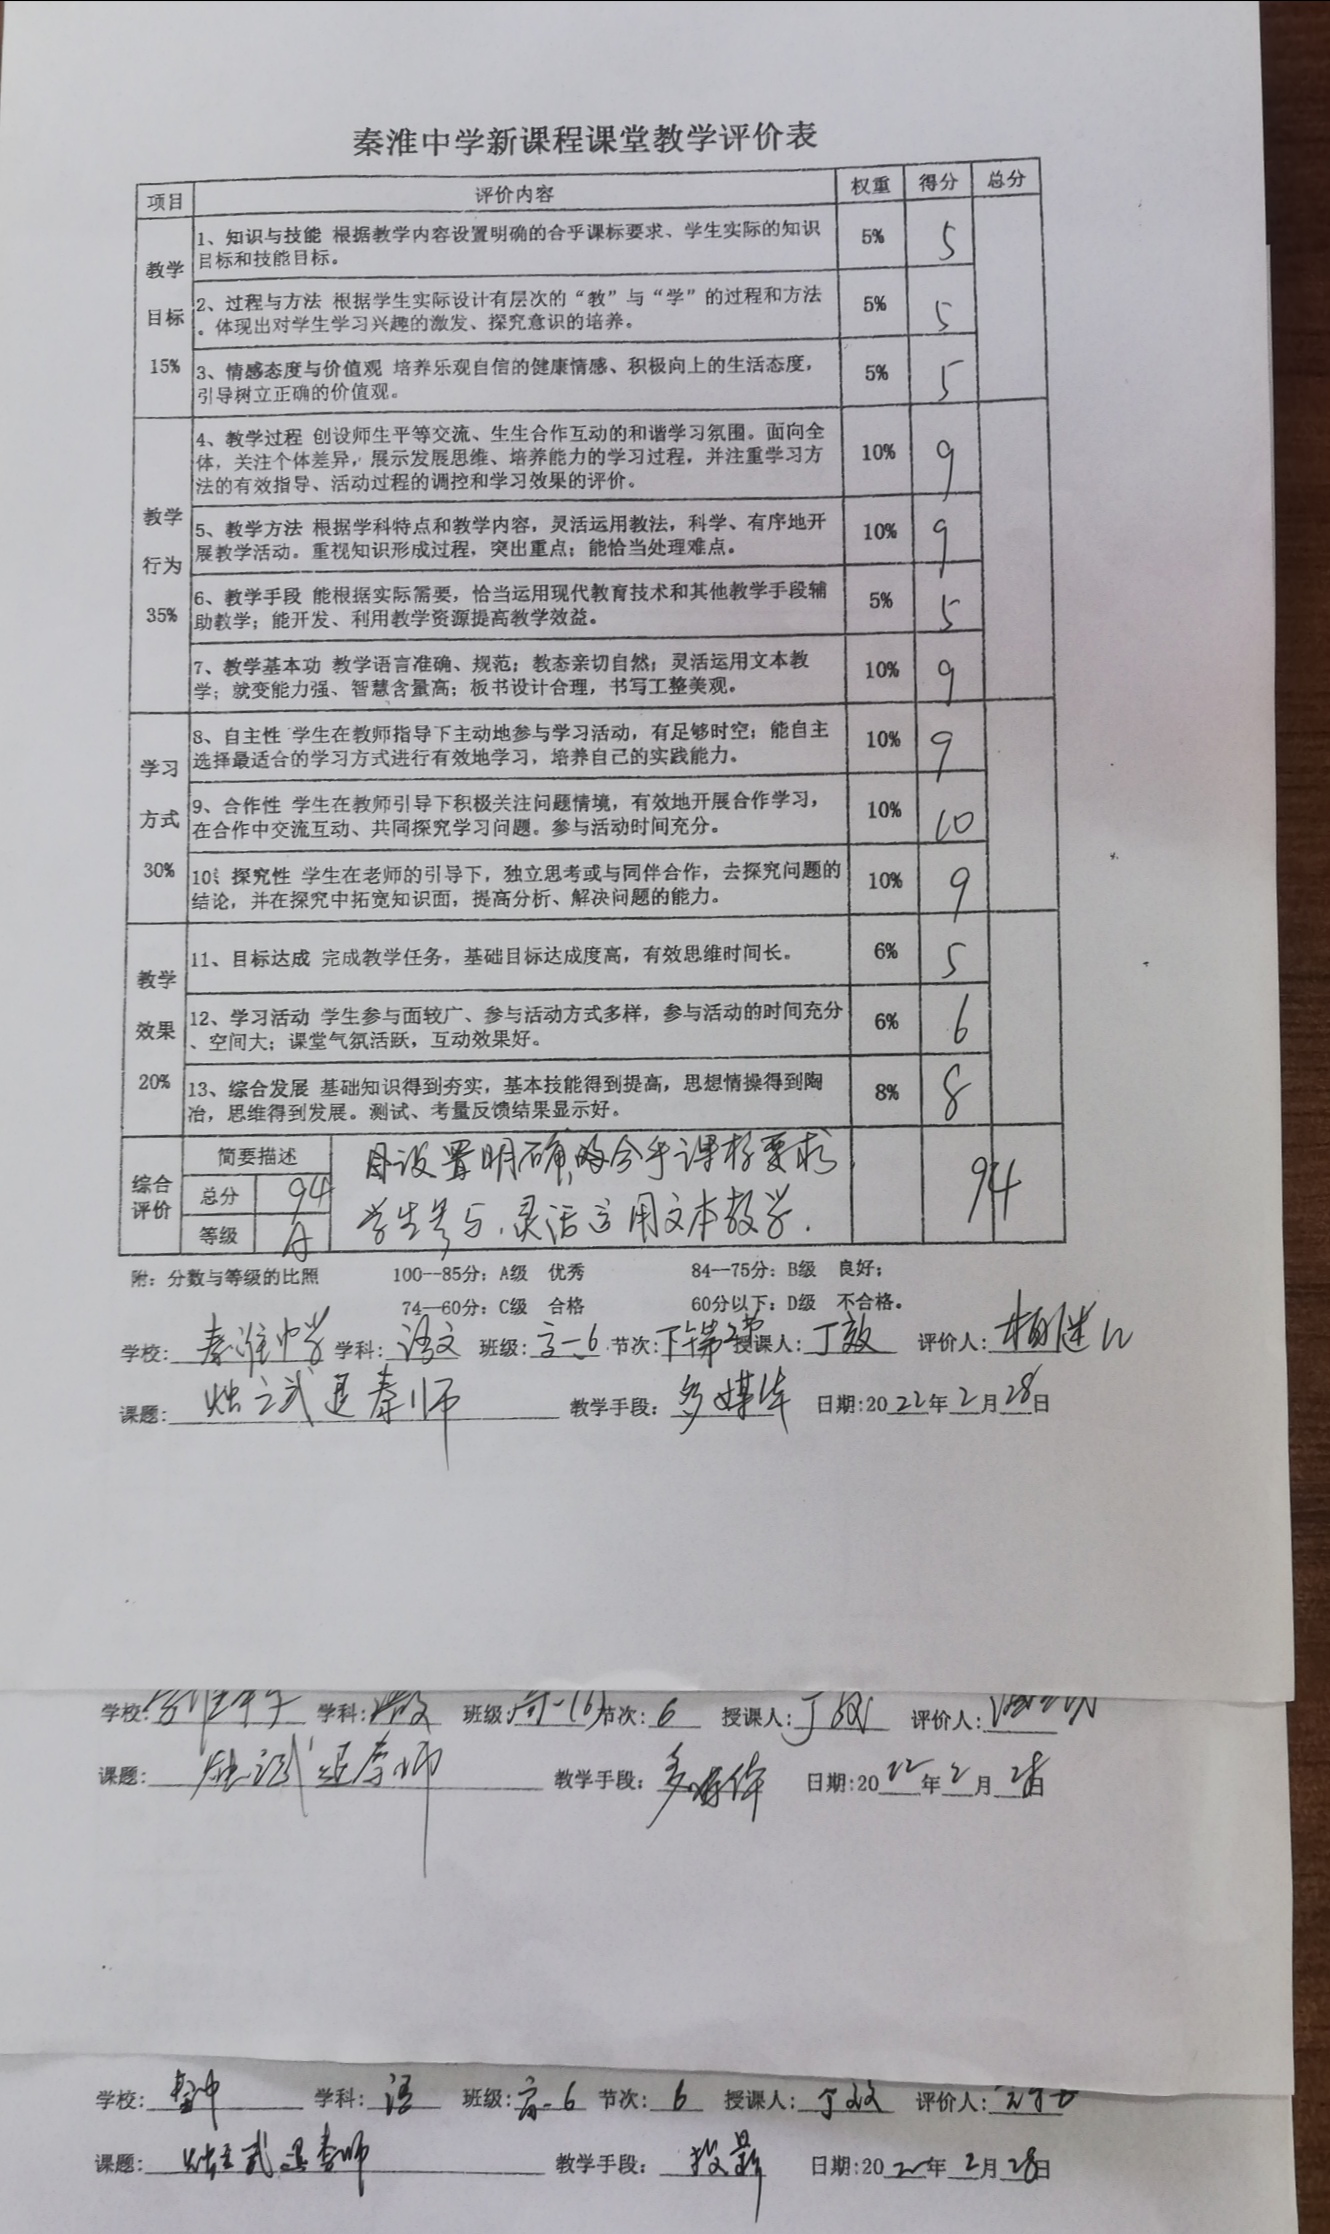 秦淮中学新课程课堂教学评价表
项目 评价内容 权重 得分 总分
教学目标 15%
1、知识与技能 根据教学内容设置明确的合乎课标要求、学生实际的知识
目标和技能目标。 5% 5
2、过程与方法 根据学生实际设计有层次的“教”与“学”的过程和方法
。体现出对学生学习兴趣的激发、探究意识的培养。 5% 5
3、情感态度与价值观 培养乐观自信的健康情感、积极向上的生活态度，
引导树立正确的价值观。 5% 5
教学行为 35%
4、教学过程 创设师生平等交流、生生合作互动的和谐学习氛围。面向全
体，关注个体差异，展示发展思维、培养能力的学习过程，并注重学习方
法的有效指导、活动过程的调控和学习效果的评价。 10% 9
5、教学方法 根据学科特点和教学内容，灵活运用教法，科学、有序地开
展教学活动。重视知识形成过程，突出重点；能恰当处理难点。 10% 9
6、教学手段 能根据实际需要，恰当运用现代教育技术和其他教学手段辅
助教学；能开发、利用教学资源提高教学效益。 5% 5
7、教学基本功 教学语言准确、规范；教态亲切自然；灵活运用文本教
学；就变能力强、智慧含量高；板书设计合理，书写工整美观。 10% 9
学习方式 30%
8、自主性 学生在教师指导下主动地参与学习活动，有足够时空；能自主
选择最适合的学习方式进行有效地学习，培养自己的实践能力。 10% 9
9、合作性 学生在教师引导下积极关注问题情境，有效地开展合作学习，
在合作中交流互动、共同探究学习问题。参与活动时间充分。 10% 10
10、探究性 学生在老师的引导下，独立思考或与同伴合作，去探究问题的
结论，并在探究中拓宽知识面，提高分析、解决问题的能力。 10% 9
教学效果 20%
11、目标达成 完成教学任务，基础目标达成度高，有效思维时间长。 6% 5
12、学习活动 学生参与面较广、参与活动方式多样，参与活动的时间充分
、空间大；课堂气氛活跃，互动效果好。 6% 6
13、综合发展 基础知识得到夯实，基本技能得到提高，思想情操得到陶
冶，思维得到发展。测试、考量反馈结果显示好。 8% 8
综合评价 简要描述 目设置明确的合乎课标要求，
总分 94 94
等级 A 学生参与，灵活运用文本教学．
附：分数与等级的比照 100--85分：A级 优秀 84--75分：B级 良好；
74--60分：C级 合格 60分以下：D级 不合格。
学校：秦淮中学 学科：语文 班级：高一6 节次：下午第2节 授课人：丁敏 评价人：
课题：烛之武退秦师 教学手段：多媒体 日期：2022年2月28日
学校：秦淮中学 学科：语文 班级：高一(6) 节次：6 授课人：丁敏 评价人：
课题：烛之武退秦师 教学手段：多媒体 日期：2022年2月28日
学校：秦中 学科：语 班级：高一6 节次：6 授课人：丁敏 评价人：
课题：烛之武退秦师 教学手段：投影 日期：2022年2月28日